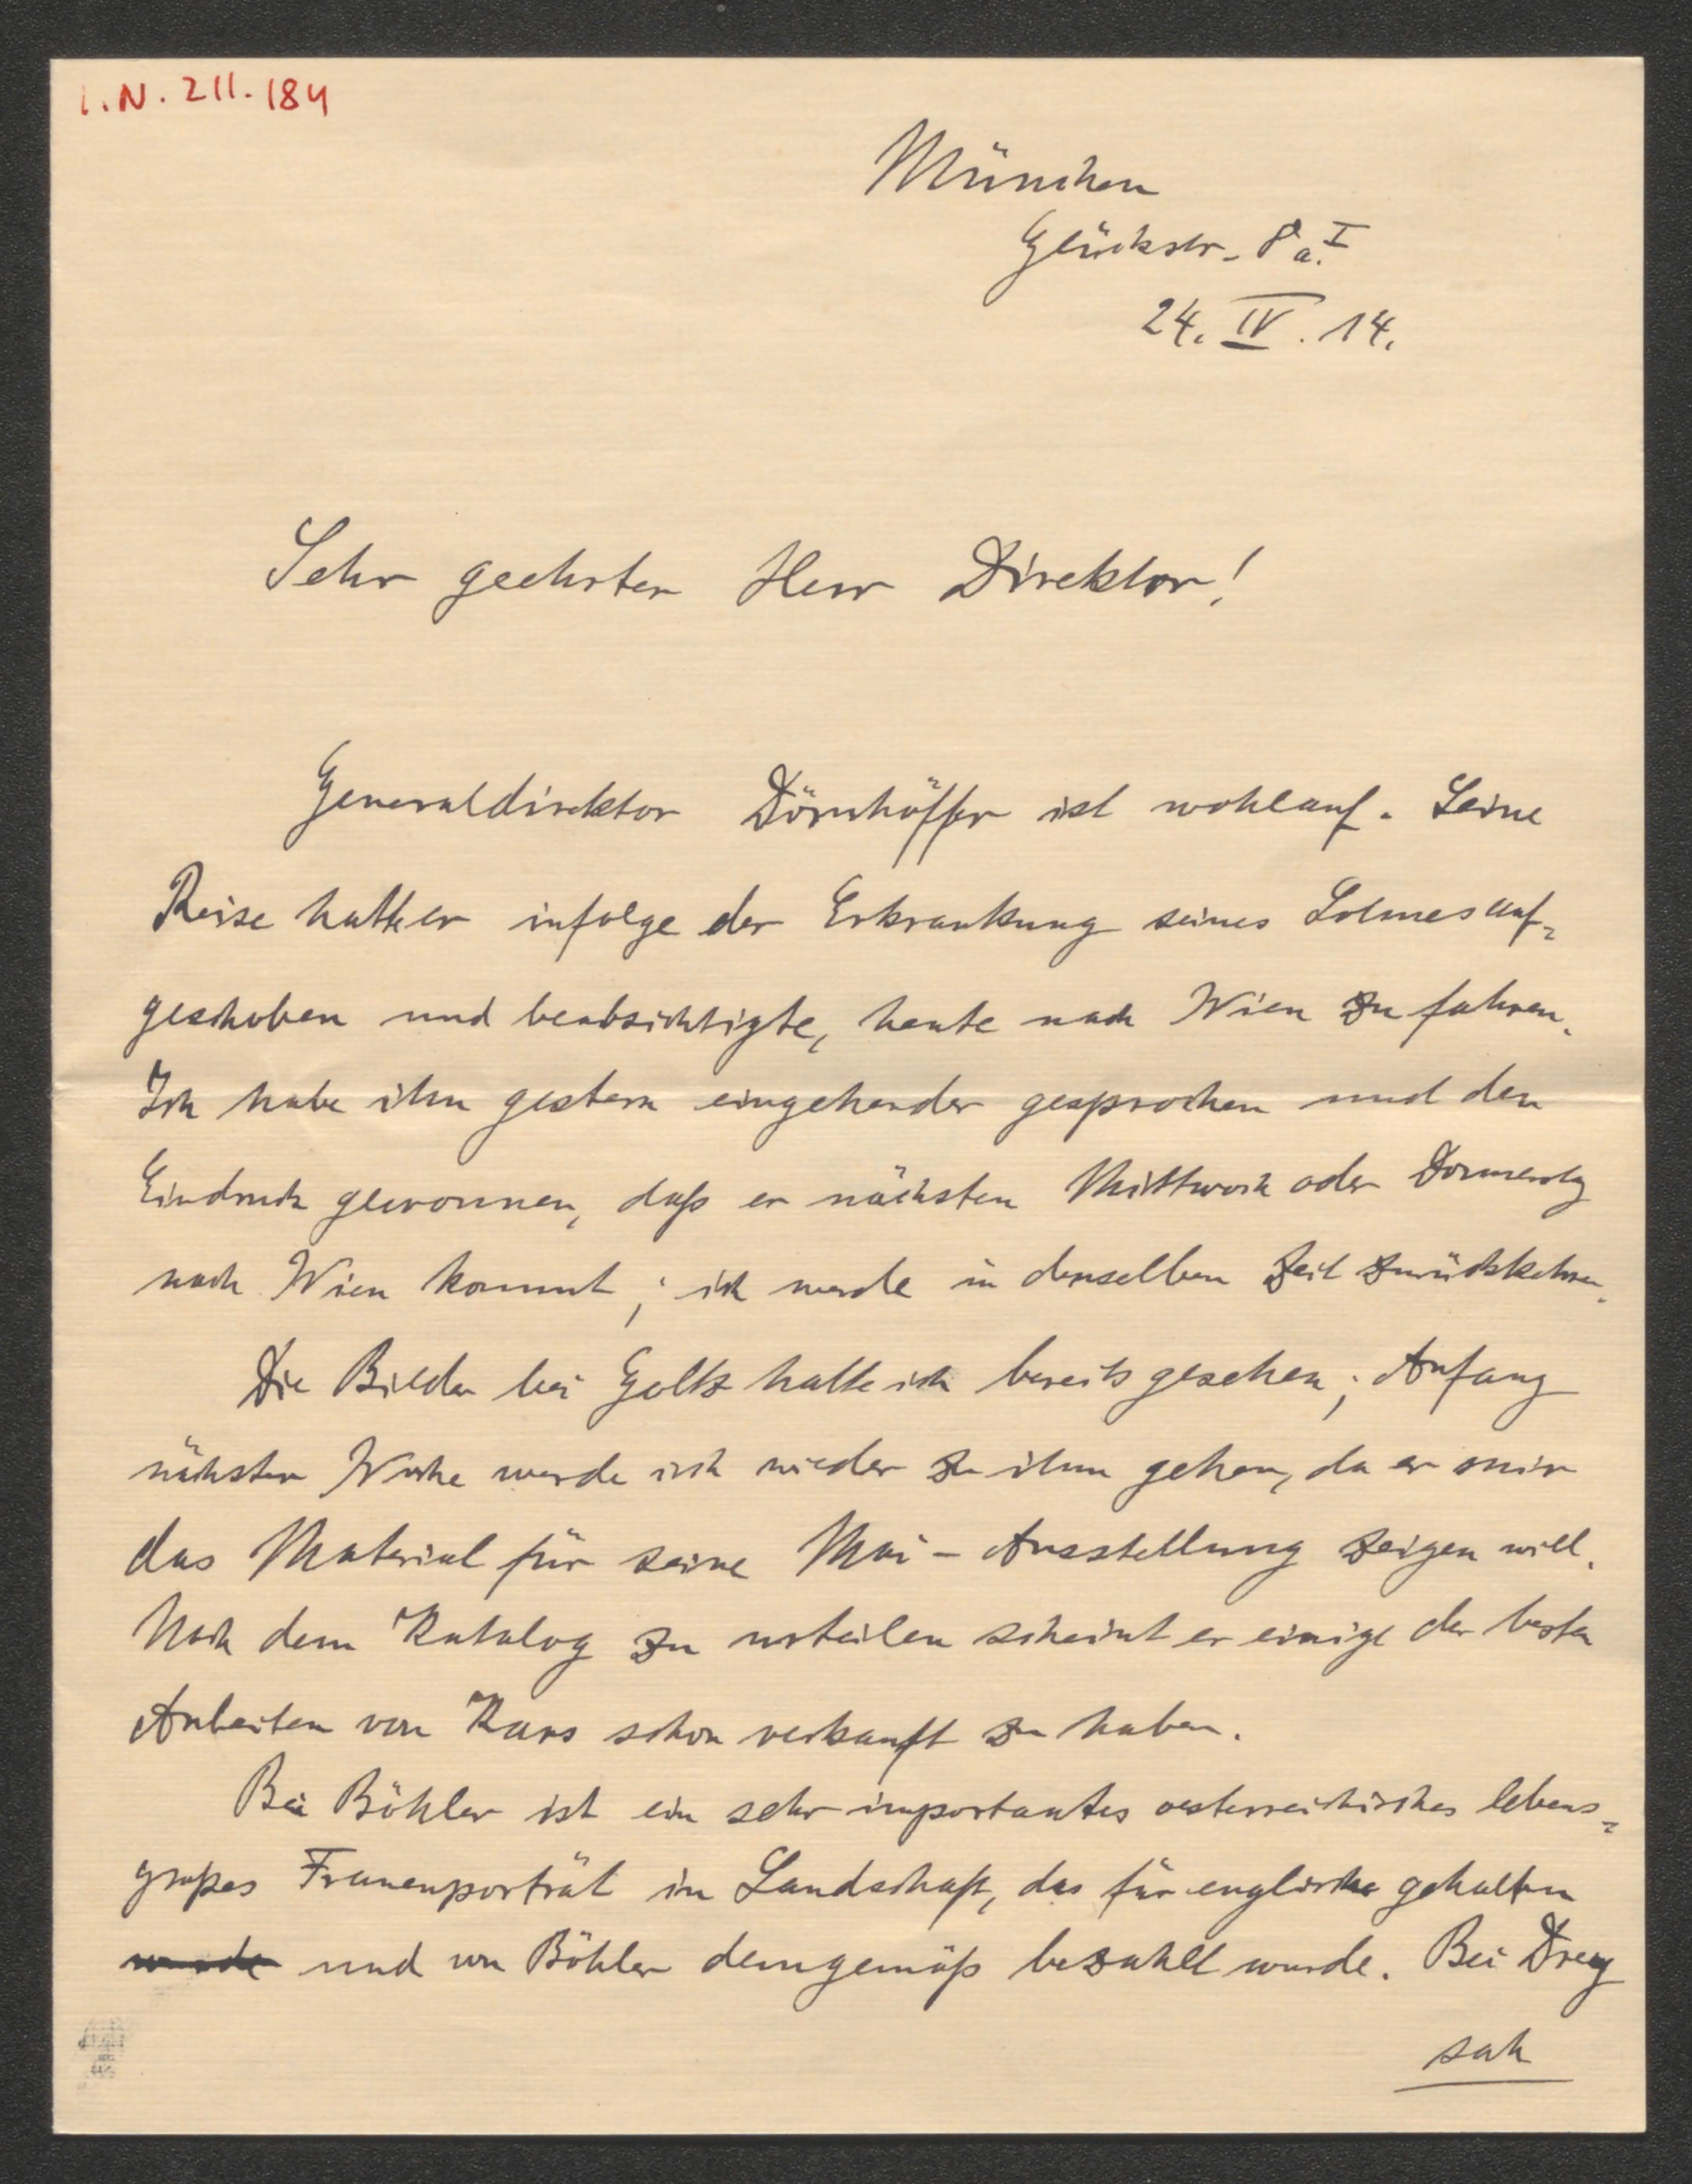 I.N. 211.184
München
Glückstr. 8 a. I
24. IV. 14.
Sehr geehrter Herr Direktor!
Generaldirektor Dörnhöffer ist wohlauf. Seine
Reise hatte er infolge der Erkrankung seines Sohnes auf=
geschoben und beabsichtigte, heute nach Wien zu fahren.
Ich habe ihn gestern eingehender gesprochen und den
Eindruck gewonnen, daß er nächsten Mittwoch oder Donnerstg
nach Wien kommt; ich werde in derselben Zeit zurückkehren.
Die Bilder bei Goltz hatte ich bereits gesehen; Anfang
nächster Woche werde ich wieder zu ihm gehen, da er mir
das Material für seine Mai-Ausstellung zeigen will.
Nach dem Katalog zu urteilen scheint er einige der besten
Arbeiten von Kars schon verkauft zu haben.
Bei Böhler ist ein sehr importantes oesterreichisches lebens=
großes Frauenporträt in Landschaft, das für englisch gehalten
wurde und von Böhler demgemäß bezahlt wurde. Bei Drey
sah